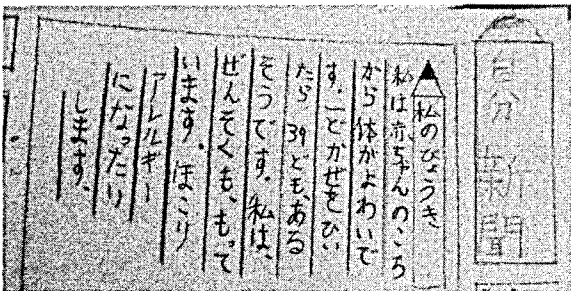 自分新聞
私のびょうき
私は赤ちゃんのころ
から体がよわいで
す。一どかぜをひい
たら39ども、ある
そうです。私は、
ぜんそくも、もって
います。ほこり
アレルギー
になったり
します。